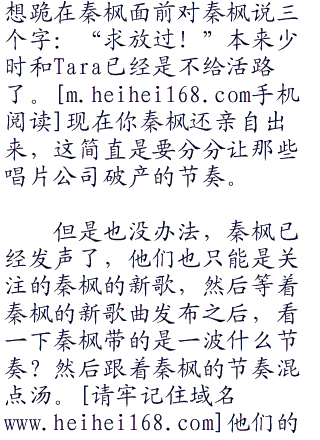 想跪在秦枫面前对秦枫说三
个字：“求放过！”本来少
时和Tara已经是不给活路
了。[m.heihei168.com手机
阅读]现在你秦枫还亲自出
来，这简直是要分分让那些
唱片公司破产的节奏。
但是也没办法，秦枫已
经发声了，他们也只能是关
注的秦枫的新歌，然后等着
秦枫的新歌曲发布之后，看
一下秦枫带的是一波什么节
奏？然后跟着秦枫的节奏混
点汤。[请牢记住域名
www.heihei168.com]他们的